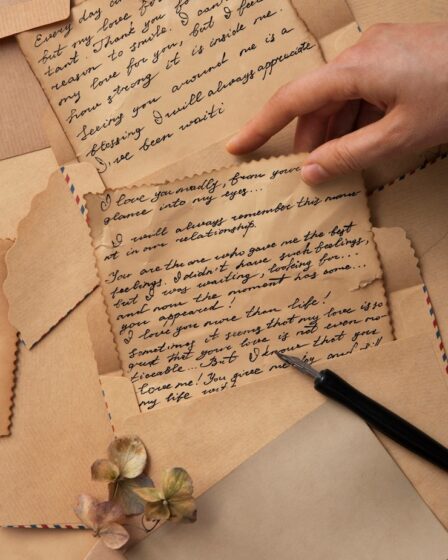 Every day
but my love fo
tant. Thank you fo
reason to smile. I can
my love for you, but I feel
how strong it is inside me.
Seeing you around me is a
blessing I will always appreciate
I've been waiti
I love you madly, from your
glance into my eyes...
I will always remember this mome
nt in our relationship.
You are the one who gave me the best
feelings. I didn't have such feelings,
but I was waiting, looking for...
and now the moment has come...
you appeared!
I love you more than life!
Sometimes it seems that my love is so
great that your love is not even no-
ticeable... But I know that you
love me! You give me joy and fill
my life wit